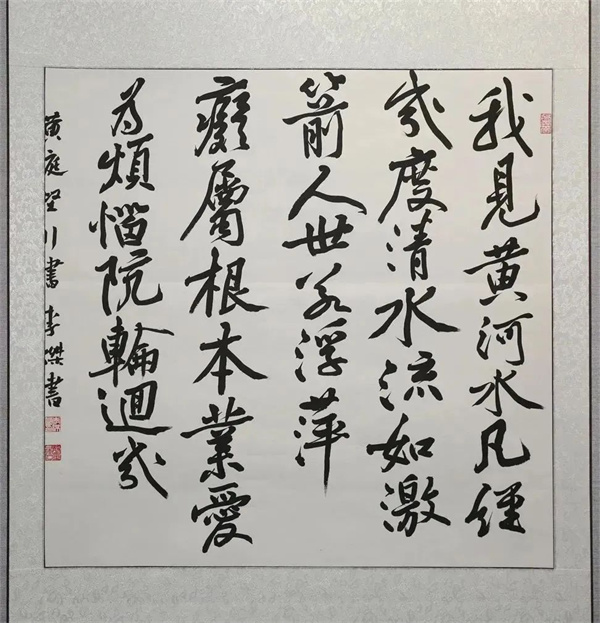 我見黄河水凡經
幾度清水流如激
箭人世若浮萍
癡屬根本業愛
為煩惱阬輪迴幾
黄庭堅行書 李 書